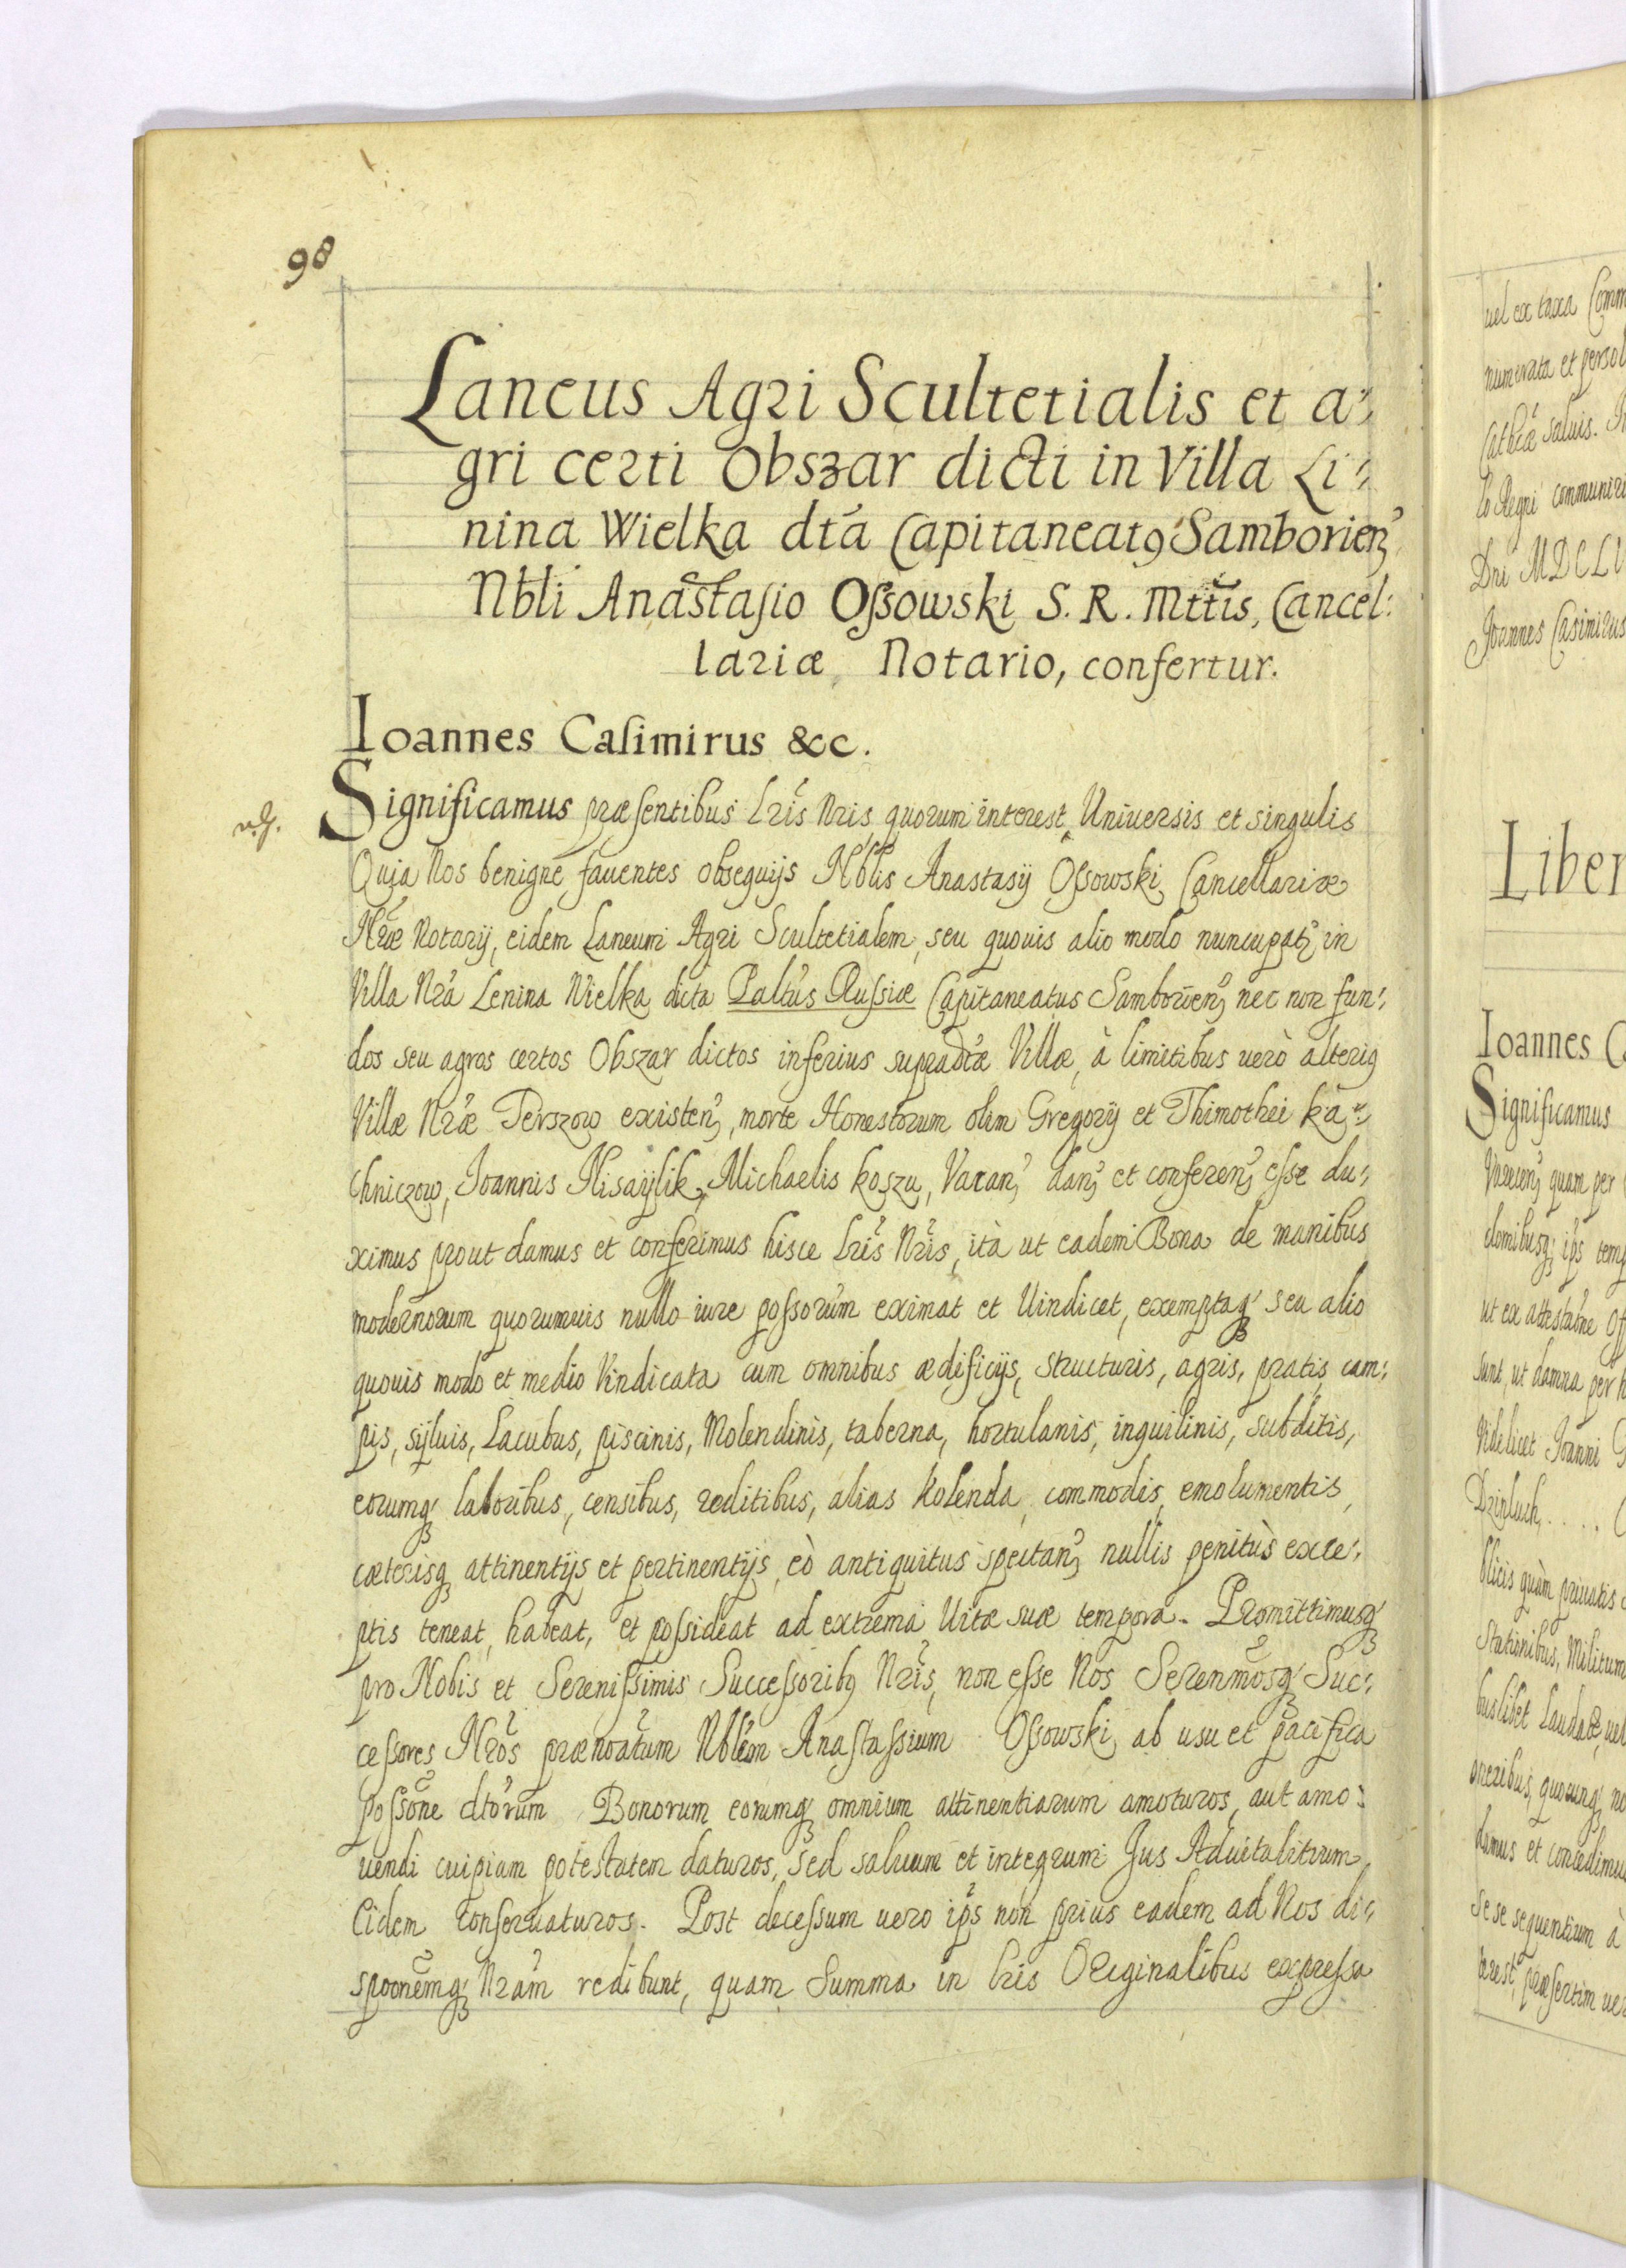 98
Laneus Agri Scultetialis et a⸗
gri certi Obszar dicti in Villa Li⸗
nina Wielka dta Capitaneatꝯ Samborien
Nbli Anastasio Ossowski S. R. Mttis, Cancel:
lariæ Notario, confertur.
Ioannes Casimirus &c.
Significamus præsentibus Lris Nris quorum interest Universis et singulis
Quia Nos benigne fauentes obsequijs Nblis Anastasij Ossowski Cancellariæ
Nræ Notarij, eidem Laneum Agri Scultetialem, seu quouis alio modo nuncupatz in
Villa Nra Lenina Wielka dicta Paltus Russiæ Capitaneatus Samborien nec non fun⸗
dos seu agros certos Obszar dictos inferius supradtæ Villæ, à limitibus uerò alterꝯ
Villæ Nræ Terszow existen, morte Honestorum olim Gregorij et Thimothei ka⸗
chniczow, Joannis Misaylik, Michaelis koszu, Vacan dan et conferen esse du⸗
ximus prout damus et conferimus hisce Lris Nris, ità ut eadem Bona de manibus
modernorum quorumuis nullo iure possorum eximat et Uindicet, exemptaqꝫ seu alio
quouis modo et medio Vindicata cum omnibus ædificijs, structuris, agris, pratis, cam⸗
pis, syluis, Lacubus, piscinis, Molendinis, taberna, hortulanis, inquilinis, subditis,
eorumqꝫ laboribus, censibus, reditibus, alias kolenda, commodis, emolumentis,
cæterisqꝫ attinentijs et pertinentijs, eò antiquitus spectan nullis penitùs exce⸗
ptis teneat, habeat, et possideat ad extrema Uitæ suæ tempora. Promittimusqꝫ
pro Nobis et Serenissimis Successoribꝯ Nris, non esse Nos Serenmosqꝫ Suc⸗
cessores Nros prænoatum Nblem Anastassium Ossowski ab usu et pacifica
possone dtorum Bonorum eorumqꝫ omnium attinentiarum amoturos, aut amo⸗
uendi cuipiam potestatem daturos, sed saluum et integrum Jus Aduitalitium
Eidem conseruaturos. Post decessum uero ips non prius eadem ad Nos di⸗
spoonemqꝫ Nram redibunt, quam Summa in Lris Originalibus expressa
uel ex taxa
numerata et
Cathcæ saluis.
Dni MDCLI
Joannes Casimirus
Liber
Ioannes
Significamus
quam per
ut ex
sunt, ut damna per
Videlicet Joanni
blicis quàm priuatis
Stationibus, Militum
damus et concedimus
sese sequentium à